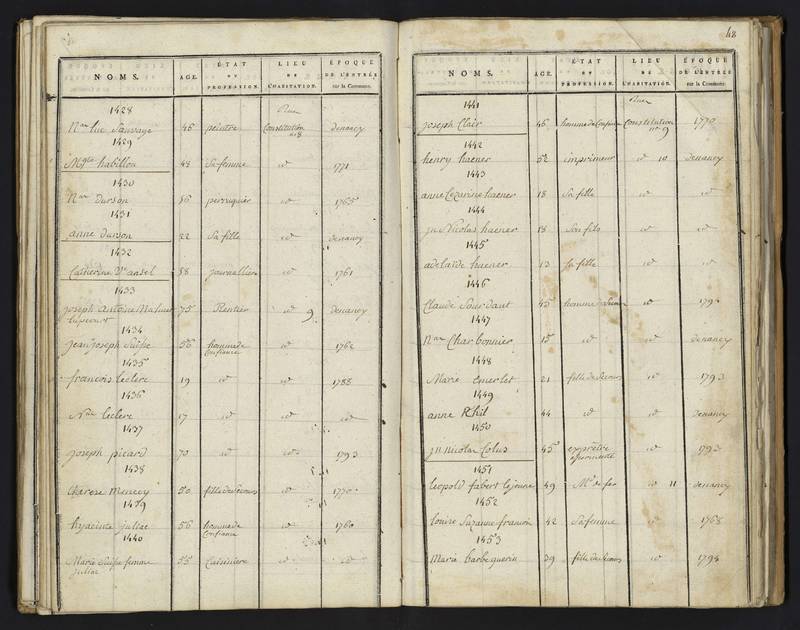 NOMS. AGE. ÉTAT OU PROFESSION. LIEU DE L'HABITATION. ÉPOQUE DE L'ENTRÉE sur la Commune.
1428 Rue
Nas luc Sauvage 46 peintre Constitution n° 8 denancy
1429
Mgte habillon 48 Sa femme id 1771
1430
Nas durson 56 perruquier id 1765
1431
anne durson 22 Sa fille id denancy
1432
Catherine Ve ansel 58 journalliere id 1761
1433
joseph Antoine 75 Rentier id 9 denancy
1434
jean joseph Suisse 56 homme de Confiance id 1762
1435
francois leclerc 19 id id 1788
1436
Nas leclerc 17 id id id
1437
joseph picard 70 id id 1793
1438
therese Mencey 50 fille de Secours id 1770
1439
hyacinte juliac 56 homme de Confiance id 1760
1440
Marie Suisse femme juliac 55 Cuisiniere id id
48
NOMS. AGE. ÉTAT OU PROFESSION. LIEU DE L'HABITATION. ÉPOQUE DE L'ENTRÉE sur la Commune.
1441 Rue
joseph Clair 46 homme de Confiance Constitution n° 9 1770
1442
henry haener 52 imprimeur id 10 denancy
1443
anne Cezarine haener 18 Sa fille id id
1444
jn Nicolas haener 18 Son fils id id
1445
adelaide haener 13 Sa fille id id
1446
Claude Sourdaut 45 id
1447
Nas Charbonnier 15 id id denancy
1448
Marie Emerlet 21 fille de Secours id 1793
1449
anne Rhil 44 id id denancy
1450
jn nicolas Colus 45 exprêtre id 1793
1451
leopold fabert lejeune 49 Md de fer id 11 denancy
1452
louise Suzanne francois 42 Sa femme id 1768
1453
Marie barbe guerin 39 fille de Secours id